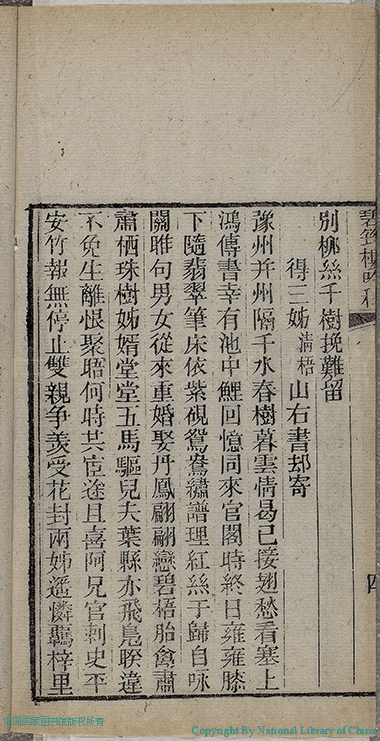 別柳絲千樹挽難留
得三姊清梧山右書却寄
豫州并州隔千水春樹暮雲情曷已接翅愁看塞上
鴻傳書幸有池中鯉回憶同來官閣時終日雍雍膝
下隨翡翠筆床依紫硯鴛鴦繡譜理紅絲于歸自咏
關雎句男女從來重婚娶丹鳳翩翩戀碧梧胎禽肅
肅栖珠樹姊婿堂堂五馬驅兒夫葉縣亦飛鳧睽違
不免生離恨聚晤何時共宦途且喜阿兄官刺史平
安竹報無停止雙親争羨受花封兩姊遥憐羈梓里
碧筠樓吟稿
四
中国国家图书馆版权所有
Copyright By National Library of China